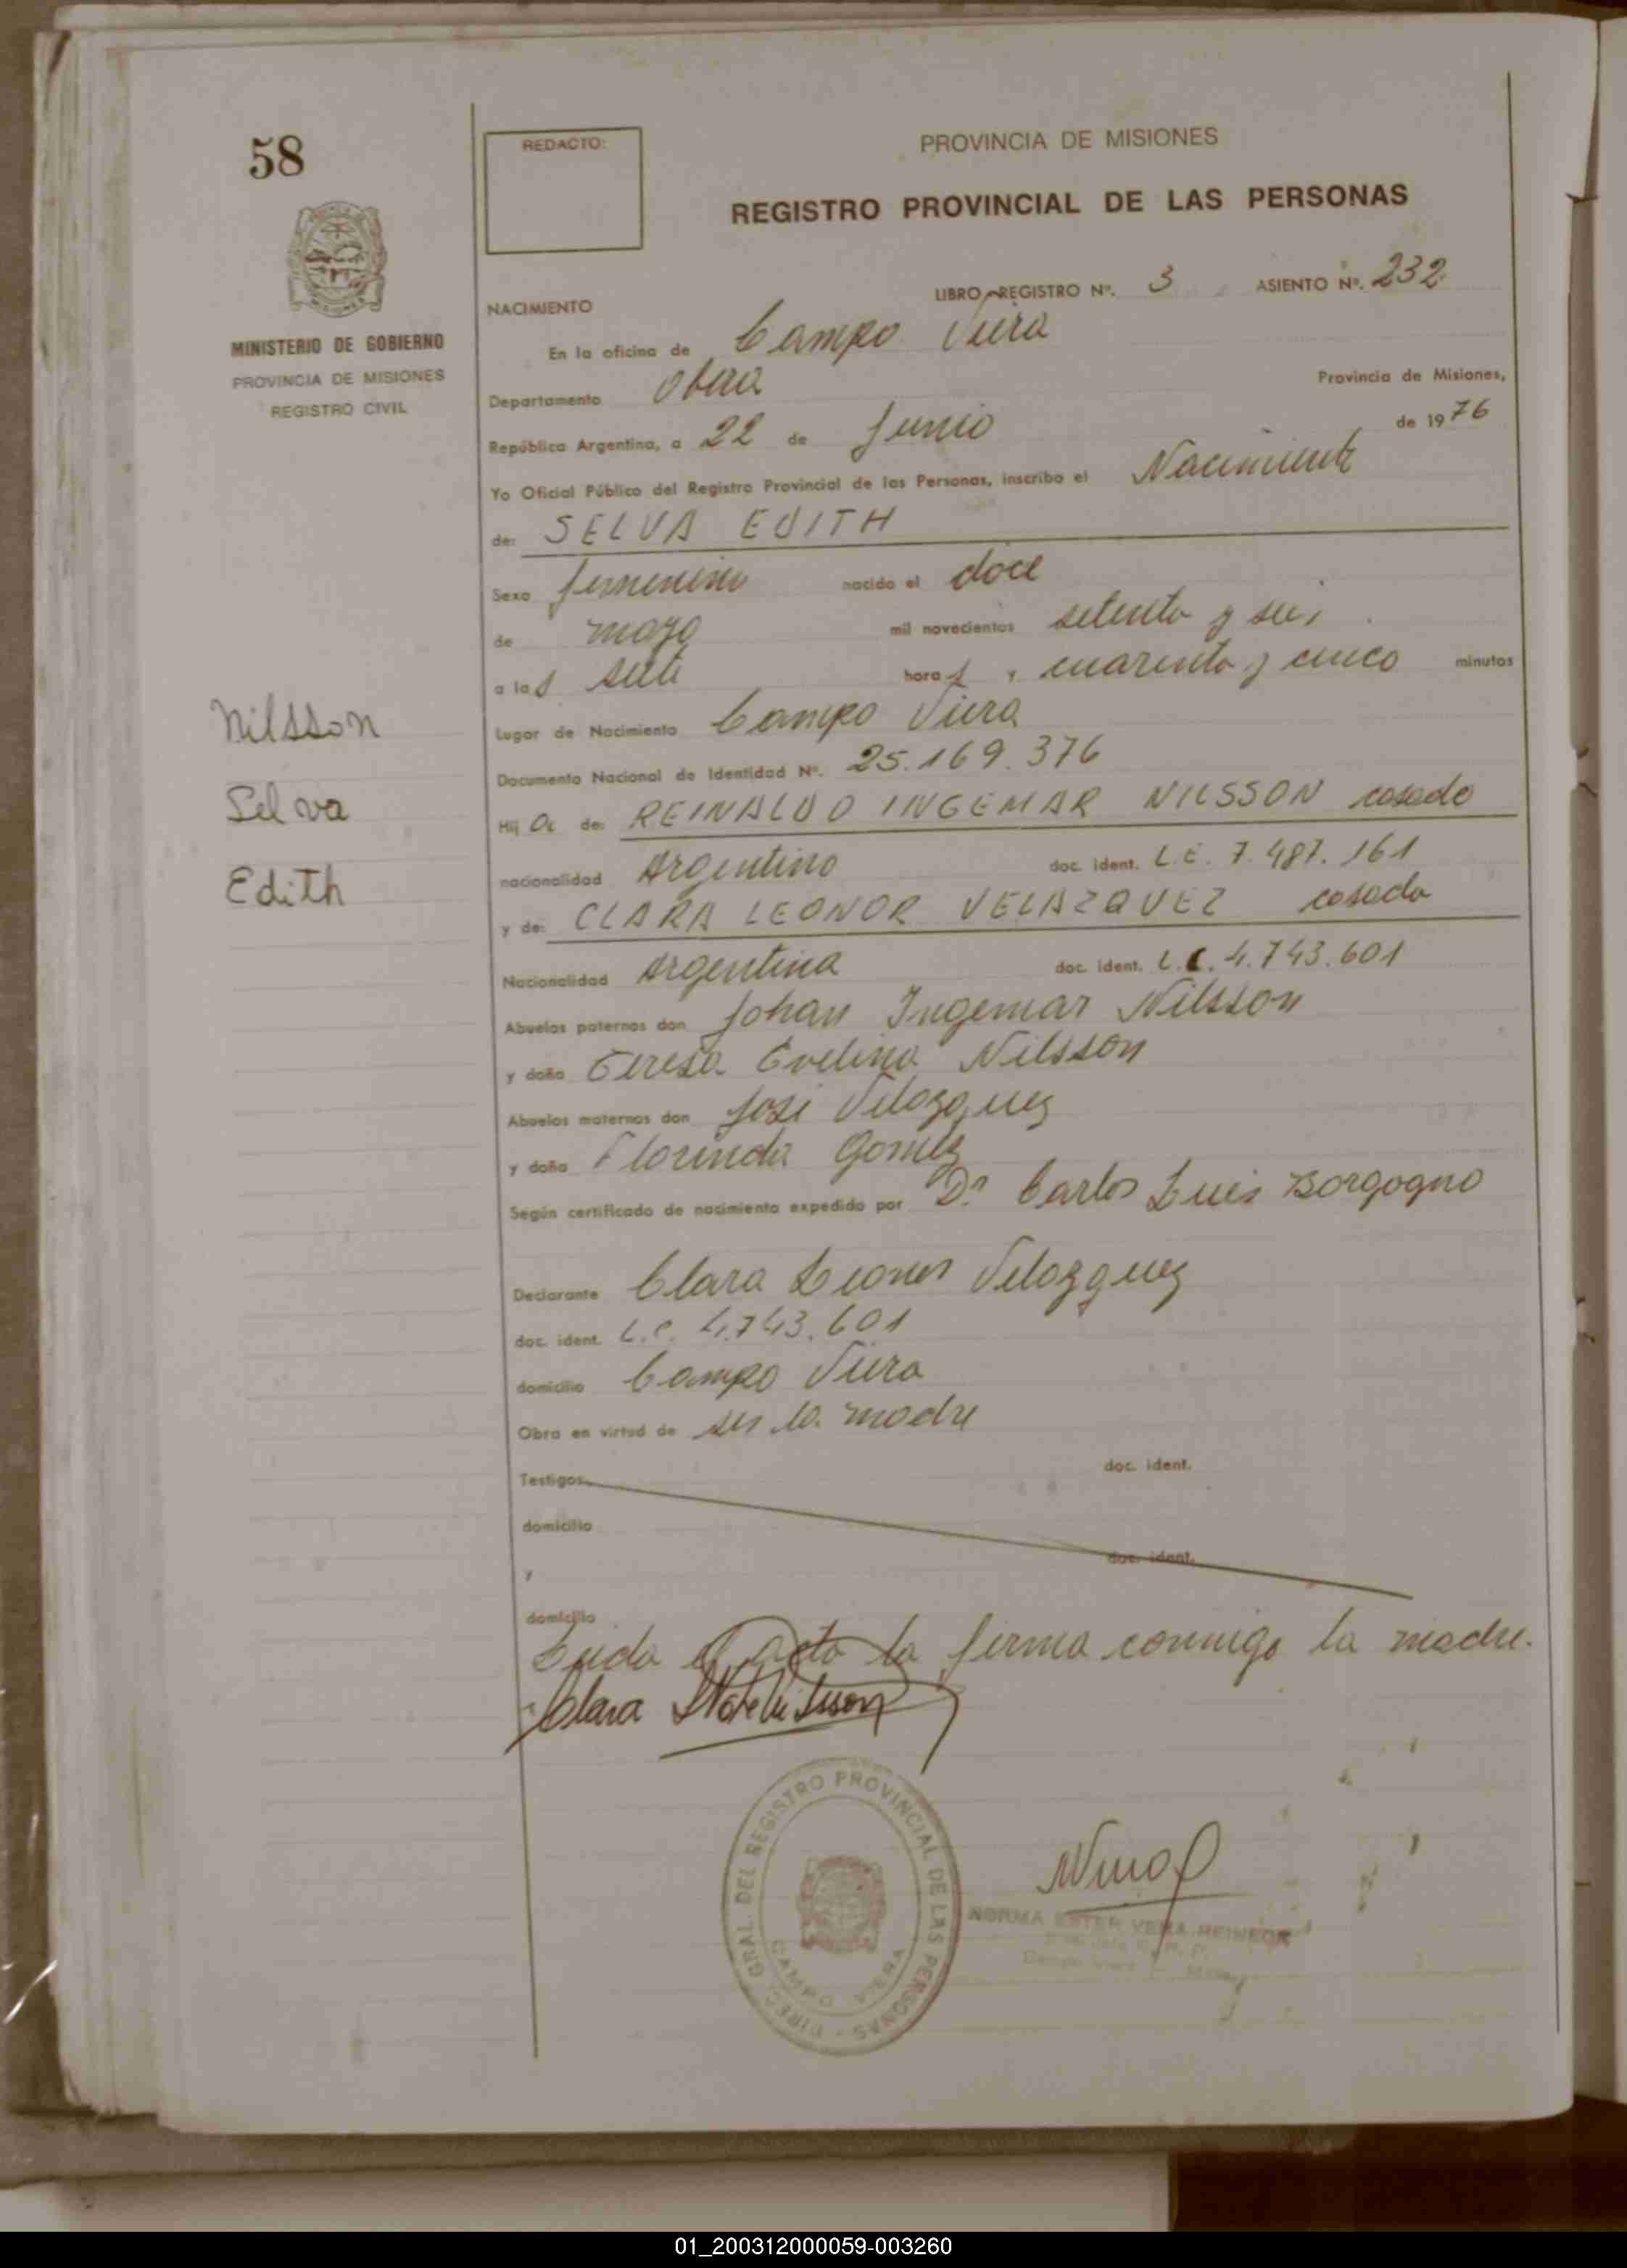 58
MINISTERIO DE GOBIERNO
PROVINCIA DE MISIONES
REGISTRO CIVIL
Nilsson
Selva
Edith
REDACTO:
PROVINCIA DE MISIONES
REGISTRO PROVINCIAL DE LAS PERSONAS
LIBRO REGISTRO Nº. 3 ASIENTO Nº. 232
NACIMIENTO
En la oficina de Campo Viera
Departamento Obera Provincia de Misiones,
República Argentina, a 22 de Junio de 1976
Yo Oficial Público del Registro Provincial de las Personas, inscribo el Nacimiento
de: SELVA EDITH
Sexo femenino nacido el doce
de mayo mil novecientos setenta y seis
a las siete horas y cuarenta y cinco minutos
Lugar de Nacimiento Campo Viera
Documento Nacional de Identidad Nº. 25.169.376
Hij a de: REINALDO INGEMAR NILSSON casado
nacionalidad Argentino doc. ident. L.E. 7.487.161
y de: CLARA LEONOR VELAZQUEZ casada
Nacionalidad Argentina doc. ident. L.C. 4.743.601
Abuelos paternos don Johan Ingemar Nilsson
y doña Teresa Evelina Nilsson
Abuelos maternos don José Velazquez
y doña Florinda Gomez
Según certificado de nacimiento expedido por Dr. Carlos Luis Borgogno
Declarante Clara Leonor Velazquez
doc. ident. L.C. 4.743.601
domicilio Campo Viera
Obra en virtud de ser la madre
Testigos doc. ident.
domicilio
y doc. ident.
domicilio
Leida el acta la firma conmigo la madre.
Clara
DIREC. GRAL. DEL REGISTRO PROVINCIAL DE LAS PERSONAS
CAMPO VIERA
NORMA ESTER VERA REINECK
Campo Viera
01_200312000059-003260